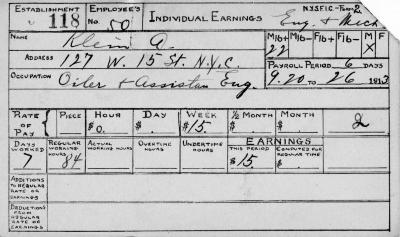 ESTABLISHMENT 118 EMPLOYEE'S No. 50 INDIVIDUAL EARNINGS N.Y.S.F.I.C.-Form 2
Eng. & Mech
NAME Klein A. M16+ M16- F16+ F16- M F
22 X
ADDRESS 127 W. 15 St. N.Y.C. PAYROLL PERIOD 6 DAYS
OCCUPATION Oiler & Assistan Eng. 9.20 to 26 1913
RATE OF PAY PIECE HOUR DAY WEEK ½ MONTH MONTH
$0. $ . $15. $ . $ . 2
DAYS WORKED REGULAR WORKING HOURS ACTUAL WORKING HOURS OVERTIME HOURS UNDERTIME HOURS EARNINGS
THIS PERIOD COMPUTED FOR REGULAR TIME
7 84 $15. $ .
ADDITIONS TO REGULAR RATE OR EARNINGS
DEDUCTIONS FROM REGULAR RATE OR EARNINGS